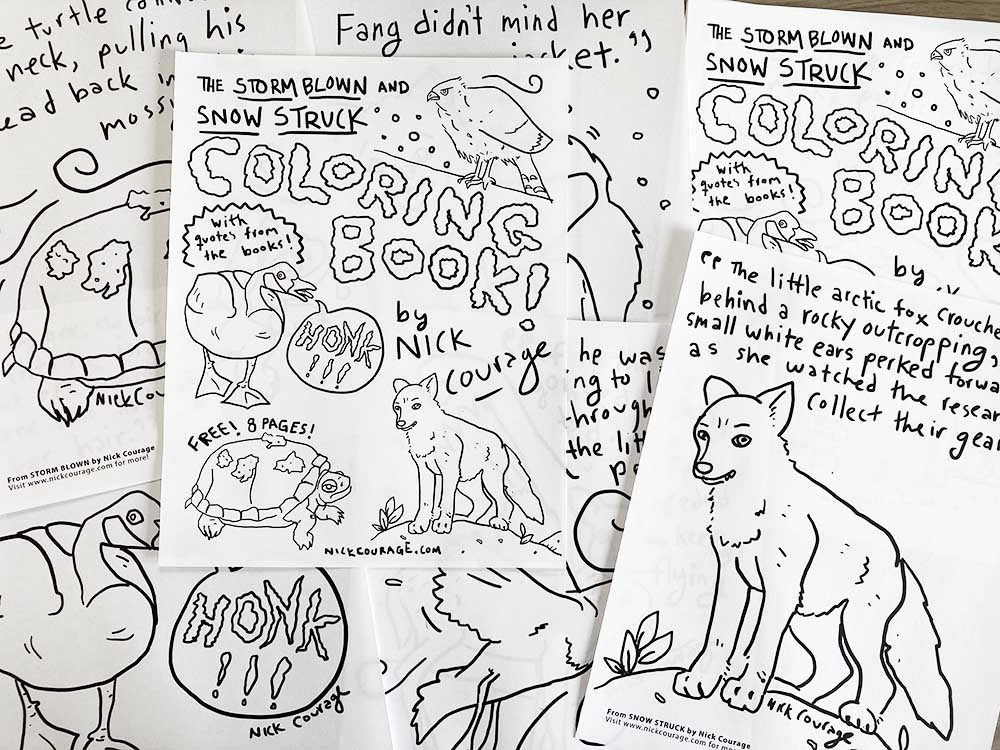 turtle
neck, pulling his
head back
mossy
Nick Cou
From STORM BLOWN by Nick Courage
Visit www.nickcourage.com for more!
Fang didn't mind her
"
THE STORM BLOWN AND
SNOW STRUCK
COLORING
BOOK!
with
quotes from
the books!
by
NICK
courage
HONK
!!!
FREE! 8 PAGES!
NICKCOURAGE.COM
THE STORM BLOWN AND
SNOW STRUCK
COLORIN
BOOK
with
quotes from
the books!
by
he was
ing to
through
the
HONK
!!!
NICK COURAGE
flying
"The little arctic fox crouche
behind a rocky outcropping,
small white ears perked forwa
as she watched the resear
collect their gear
NICK COURAGE
From SNOW STRUCK by Nick Courage
Visit www.nickcourage.com for more!